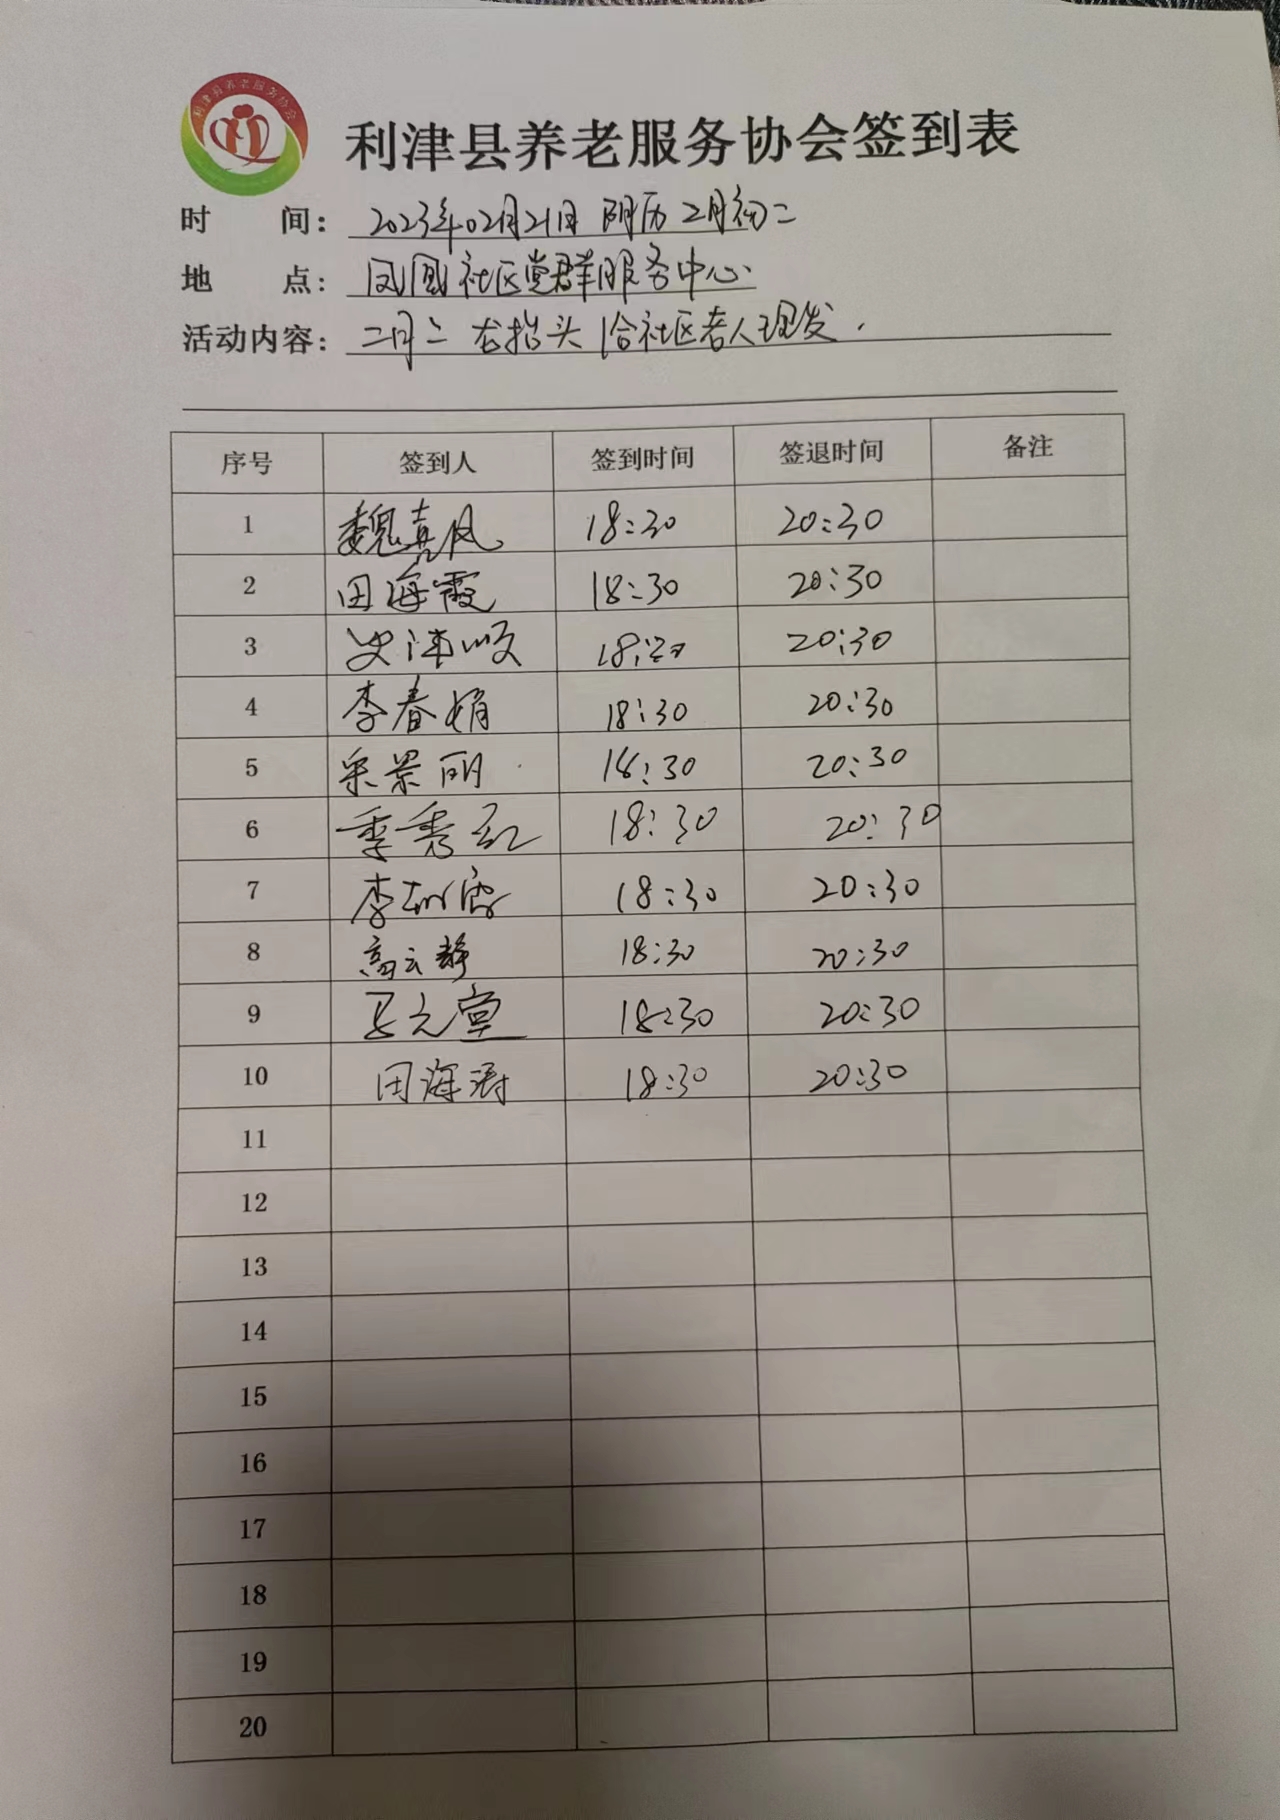 利津县养老服务协会
利津县养老服务协会签到表
时 间: 2023年02月21日 阴历 2月初二
地 点: 凤凰社区党群服务中心
活动内容: 二月二 龙抬头 给社区老人理发.
序号 签到人 签到时间 签退时间 备注
1 魏真凤 18:30 20:30
2 田海霞 18:30 20:30
3 史沛顺 18:30 20:30
4 李春娟 18:30 20:30
5 景丽 18:30 20:30
6 季秀红 18:30 20:30
7 李 18:30 20:30
8 高云静 18:30 20:30
9 元堂 18:30 20:30
10 田海涛 18:30 20:30
11
12
13
14
15
16
17
18
19
20